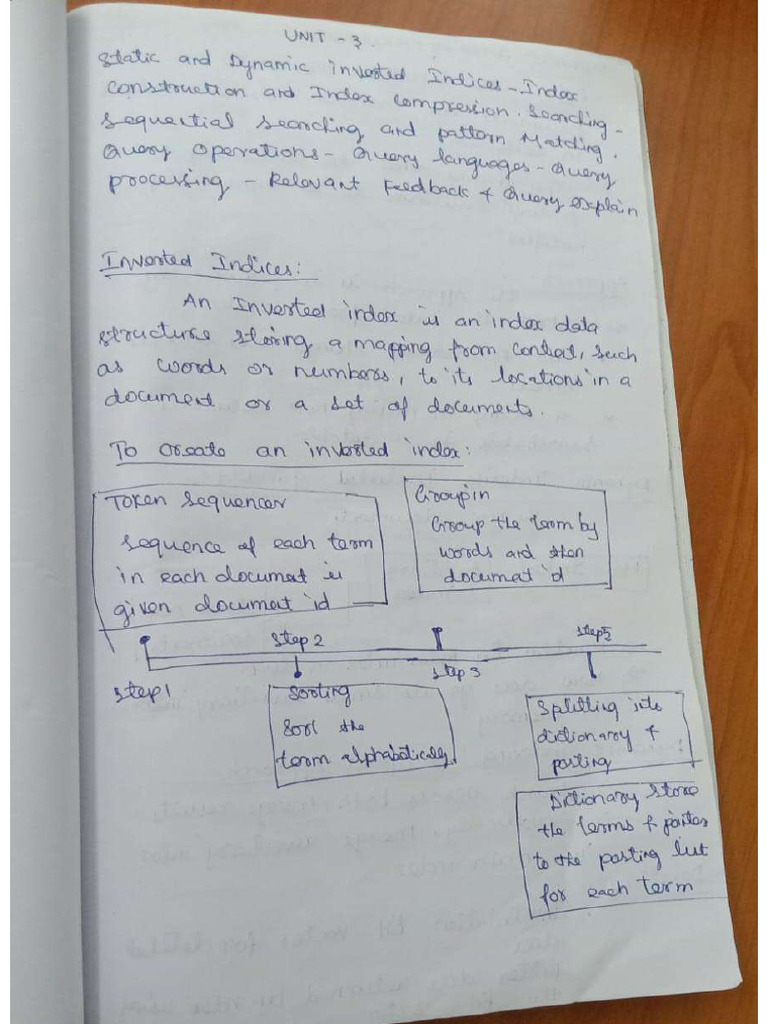 UNIT - 3.
Static and Dynamic inverted Indices - Index
construction and Index compression. Searching -
Sequential Searching and pattern Matching.
Query operations - Query languages - Query
processing - Relevant Feedback & Query explain
Inverted Indices:
An Inverted index is an index data
structure storing a mapping from content, such
as words or numbers, to its locations in a
document or a set of documents.
To create an inverted index:
Token Sequencer
Sequence of each term
in each documet is
given documet id
Groupin
Group the term by
words and then
documet id
Step 1
Step 2
Step 3
Step 5
Sorting
Sort the
term alphabetically.
Splitting into
dictionary &
posting
Dictionary store
the terms & pointer
to the posting list
for each term